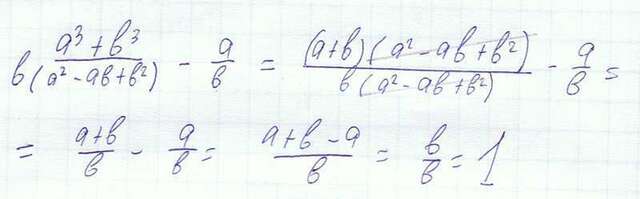 (a³ + b³)/(b(a² - ab + b²)) - a/b = ((a+b)(a² - ab + b²))/(b(a² - ab + b²)) - a/b =
= (a+b)/b - a/b = (a+b-a)/b = b/b = 1